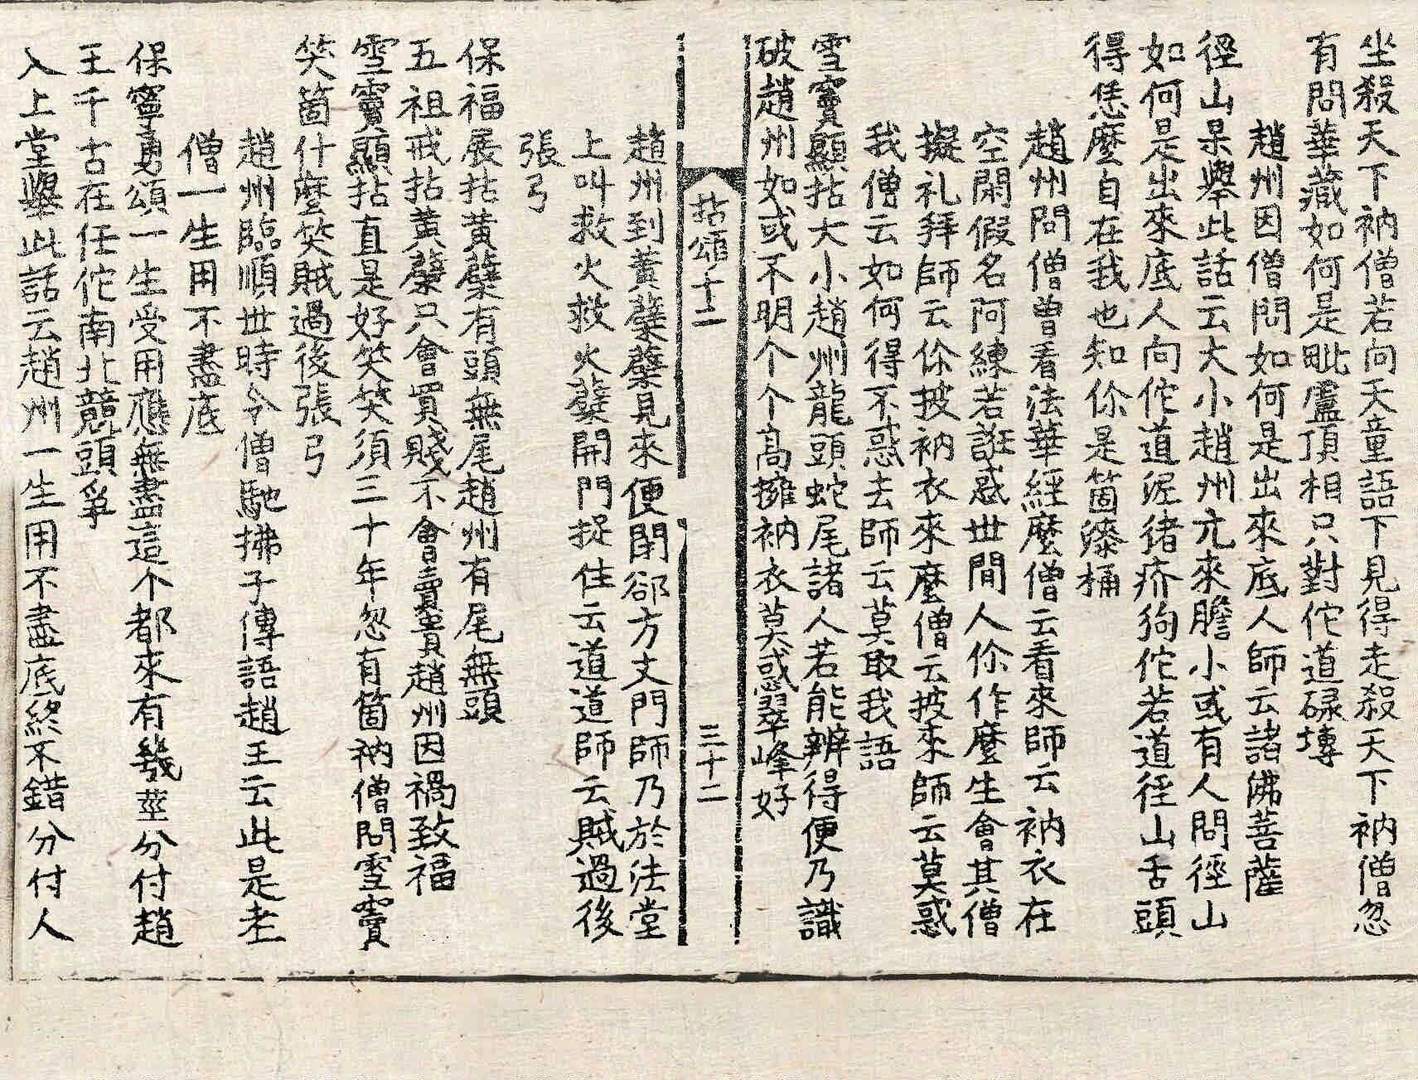 坐殺天下衲僧若向天童語下見得走殺天下衲僧忽
有問華藏如何是毗盧頂相只對佗道碌塼
趙州因僧問如何是出來底人師云諸佛菩薩
徑山杲舉此話云大小趙州亢來膽小或有人問徑山
如何是出來底人向佗道泥猪疥狗佗若道徑山舌頭
得恁麼自在我也知你是箇漆桶
趙州問僧曾看法華經麼僧云看來師云衲衣在
空閑假名阿練若誑惑世間人你作麼生會其僧
擬礼拜師云你披衲衣來麼僧云披來師云莫惑
我僧云如何得不惑去師云莫取我語
雪竇顯拈大小趙州龍頭蛇尾諸人若能辨得便乃識
破趙州如或不明个个高擁衲衣莫惑翠峰好
拈頌十二
三十二
趙州到黃蘗蘗見來便閉郤方丈門師乃於法堂
上叫救火救火蘗開門捉住云道道師云賊過後
張弓
保福展拈黃蘗有頭無尾趙州有尾無頭
五祖戒拈黃蘗只會買賤不會賣貴趙州因禍致福
雪竇顯拈直是好笑笑須三十年忽有箇衲僧問雪竇
笑箇什麼笑賊過後張弓
趙州臨順世時令僧馳拂子傳語趙王云此是老
僧一生用不盡底
保寧勇頌一生受用應無盡這个都來有幾莖分付趙
王千古在任佗南北競頭爭
入上堂舉此話云趙州一生用不盡底終不錯分付人